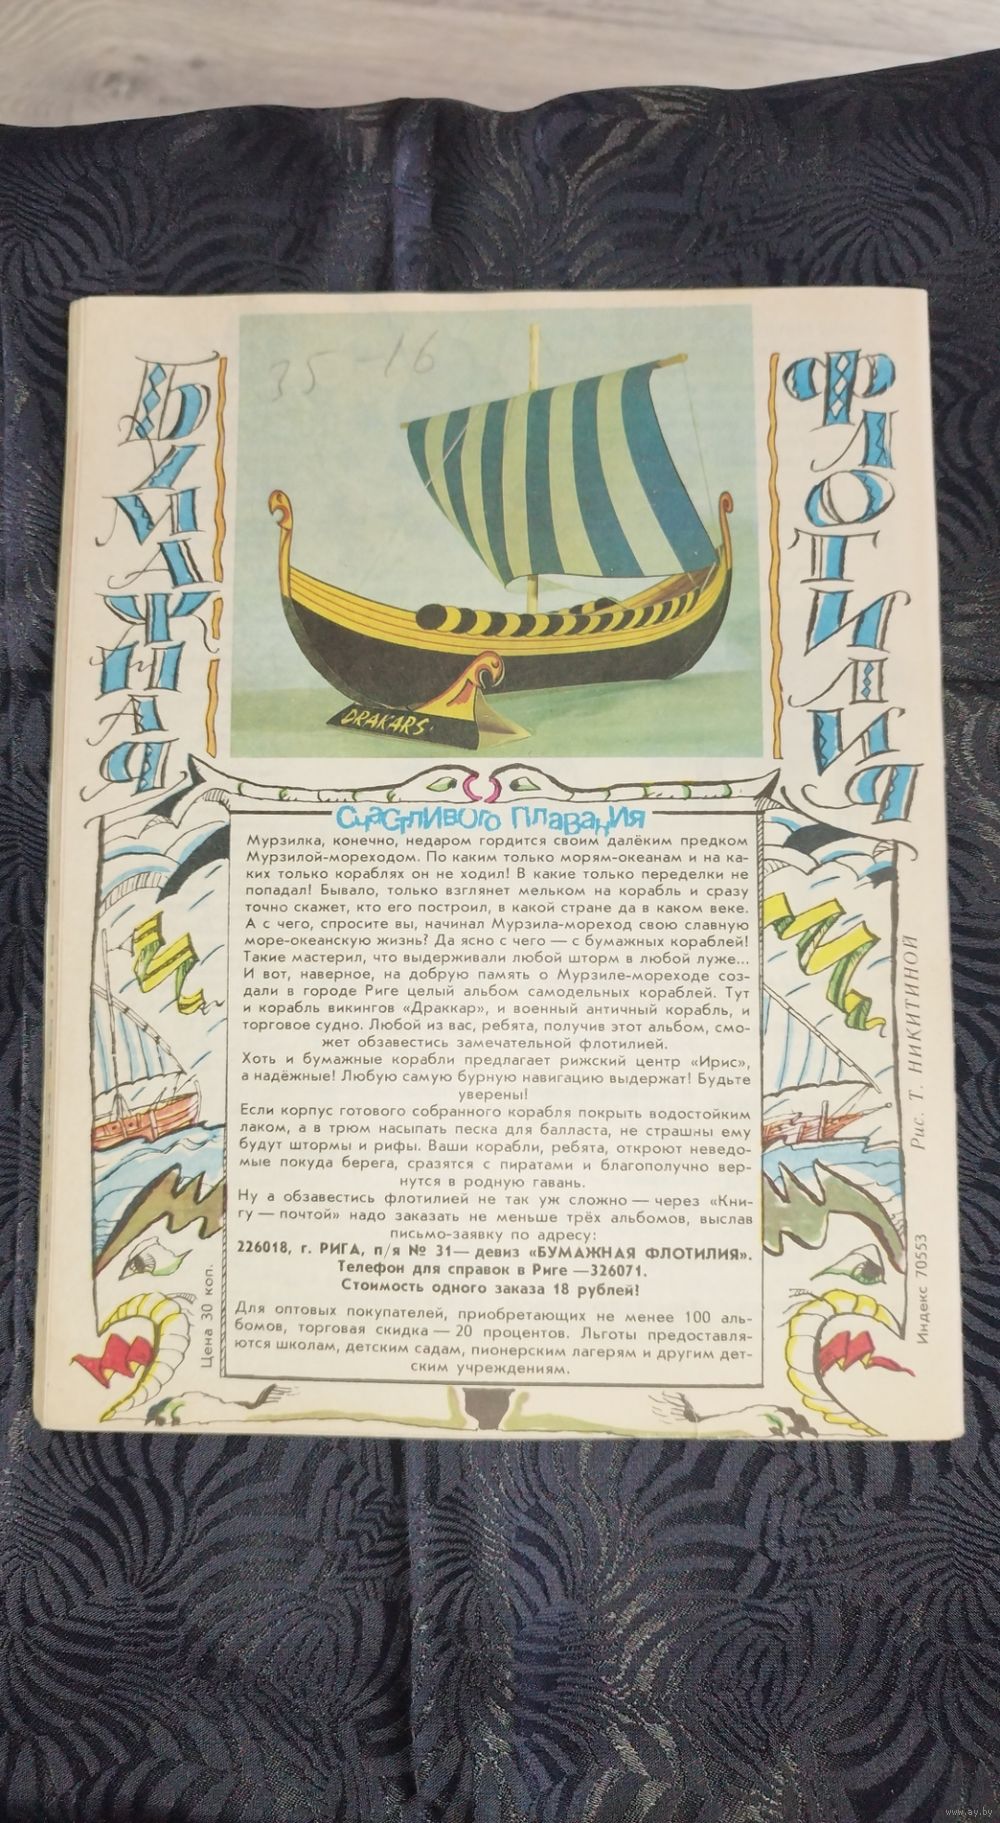 35-16
БУМАЖНАЯ
ФЛОТИЛИЯ
DRAKARS
Счастливого плавания
Мурзилка, конечно, недаром гордится своим далёким предком
Мурзилой-мореходом. По каким только морям-океанам и на ка-
ких только кораблях он не ходил! В какие только переделки не
попадал! Бывало, только взглянет мельком на корабль и сразу
точно скажет, кто его построил, в какой стране да в каком веке.
А с чего, спросите вы, начинал Мурзила-мореход свою славную
море-океанскую жизнь? Да ясно с чего — с бумажных кораблей!
Такие мастерил, что выдерживали любой шторм в любой луже...
И вот, наверное, на добрую память о Мурзиле-мореходе соз-
дали в городе Риге целый альбом самодельных кораблей. Тут
и корабль викингов «Драккар», и военный античный корабль, и
торговое судно. Любой из вас, ребята, получив этот альбом, смо-
жет обзавестись замечательной флотилией.
Хоть и бумажные корабли предлагает рижский центр «Ирис»,
а надёжные! Любую самую бурную навигацию выдержат! Будьте
уверены!
Если корпус готового собранного корабля покрыть водостойким
лаком, а в трюм насыпать песка для балласта, не страшны ему
будут штормы и рифы. Ваши корабли, ребята, откроют неведо-
мые покуда берега, сразятся с пиратами и благополучно вер-
нутся в родную гавань.
Ну а обзавестись флотилией не так уж сложно — через «Кни-
гу — почтой» надо заказать не меньше трёх альбомов, выслав
письмо-заявку по адресу:
226018, г. РИГА, п/я № 31— девиз «БУМАЖНАЯ ФЛОТИЛИЯ».
Телефон для справок в Риге —326071.
Стоимость одного заказа 18 рублей!
Для оптовых покупателей, приобретающих не менее 100 аль-
бомов, торговая скидка — 20 процентов. Льготы предоставля-
ются школам, детским садам, пионерским лагерям и другим дет-
ским учреждениям.
Цена 30 коп.
Рис. Т. НИКИТИНОЙ
Индекс 70553
www.ay.by